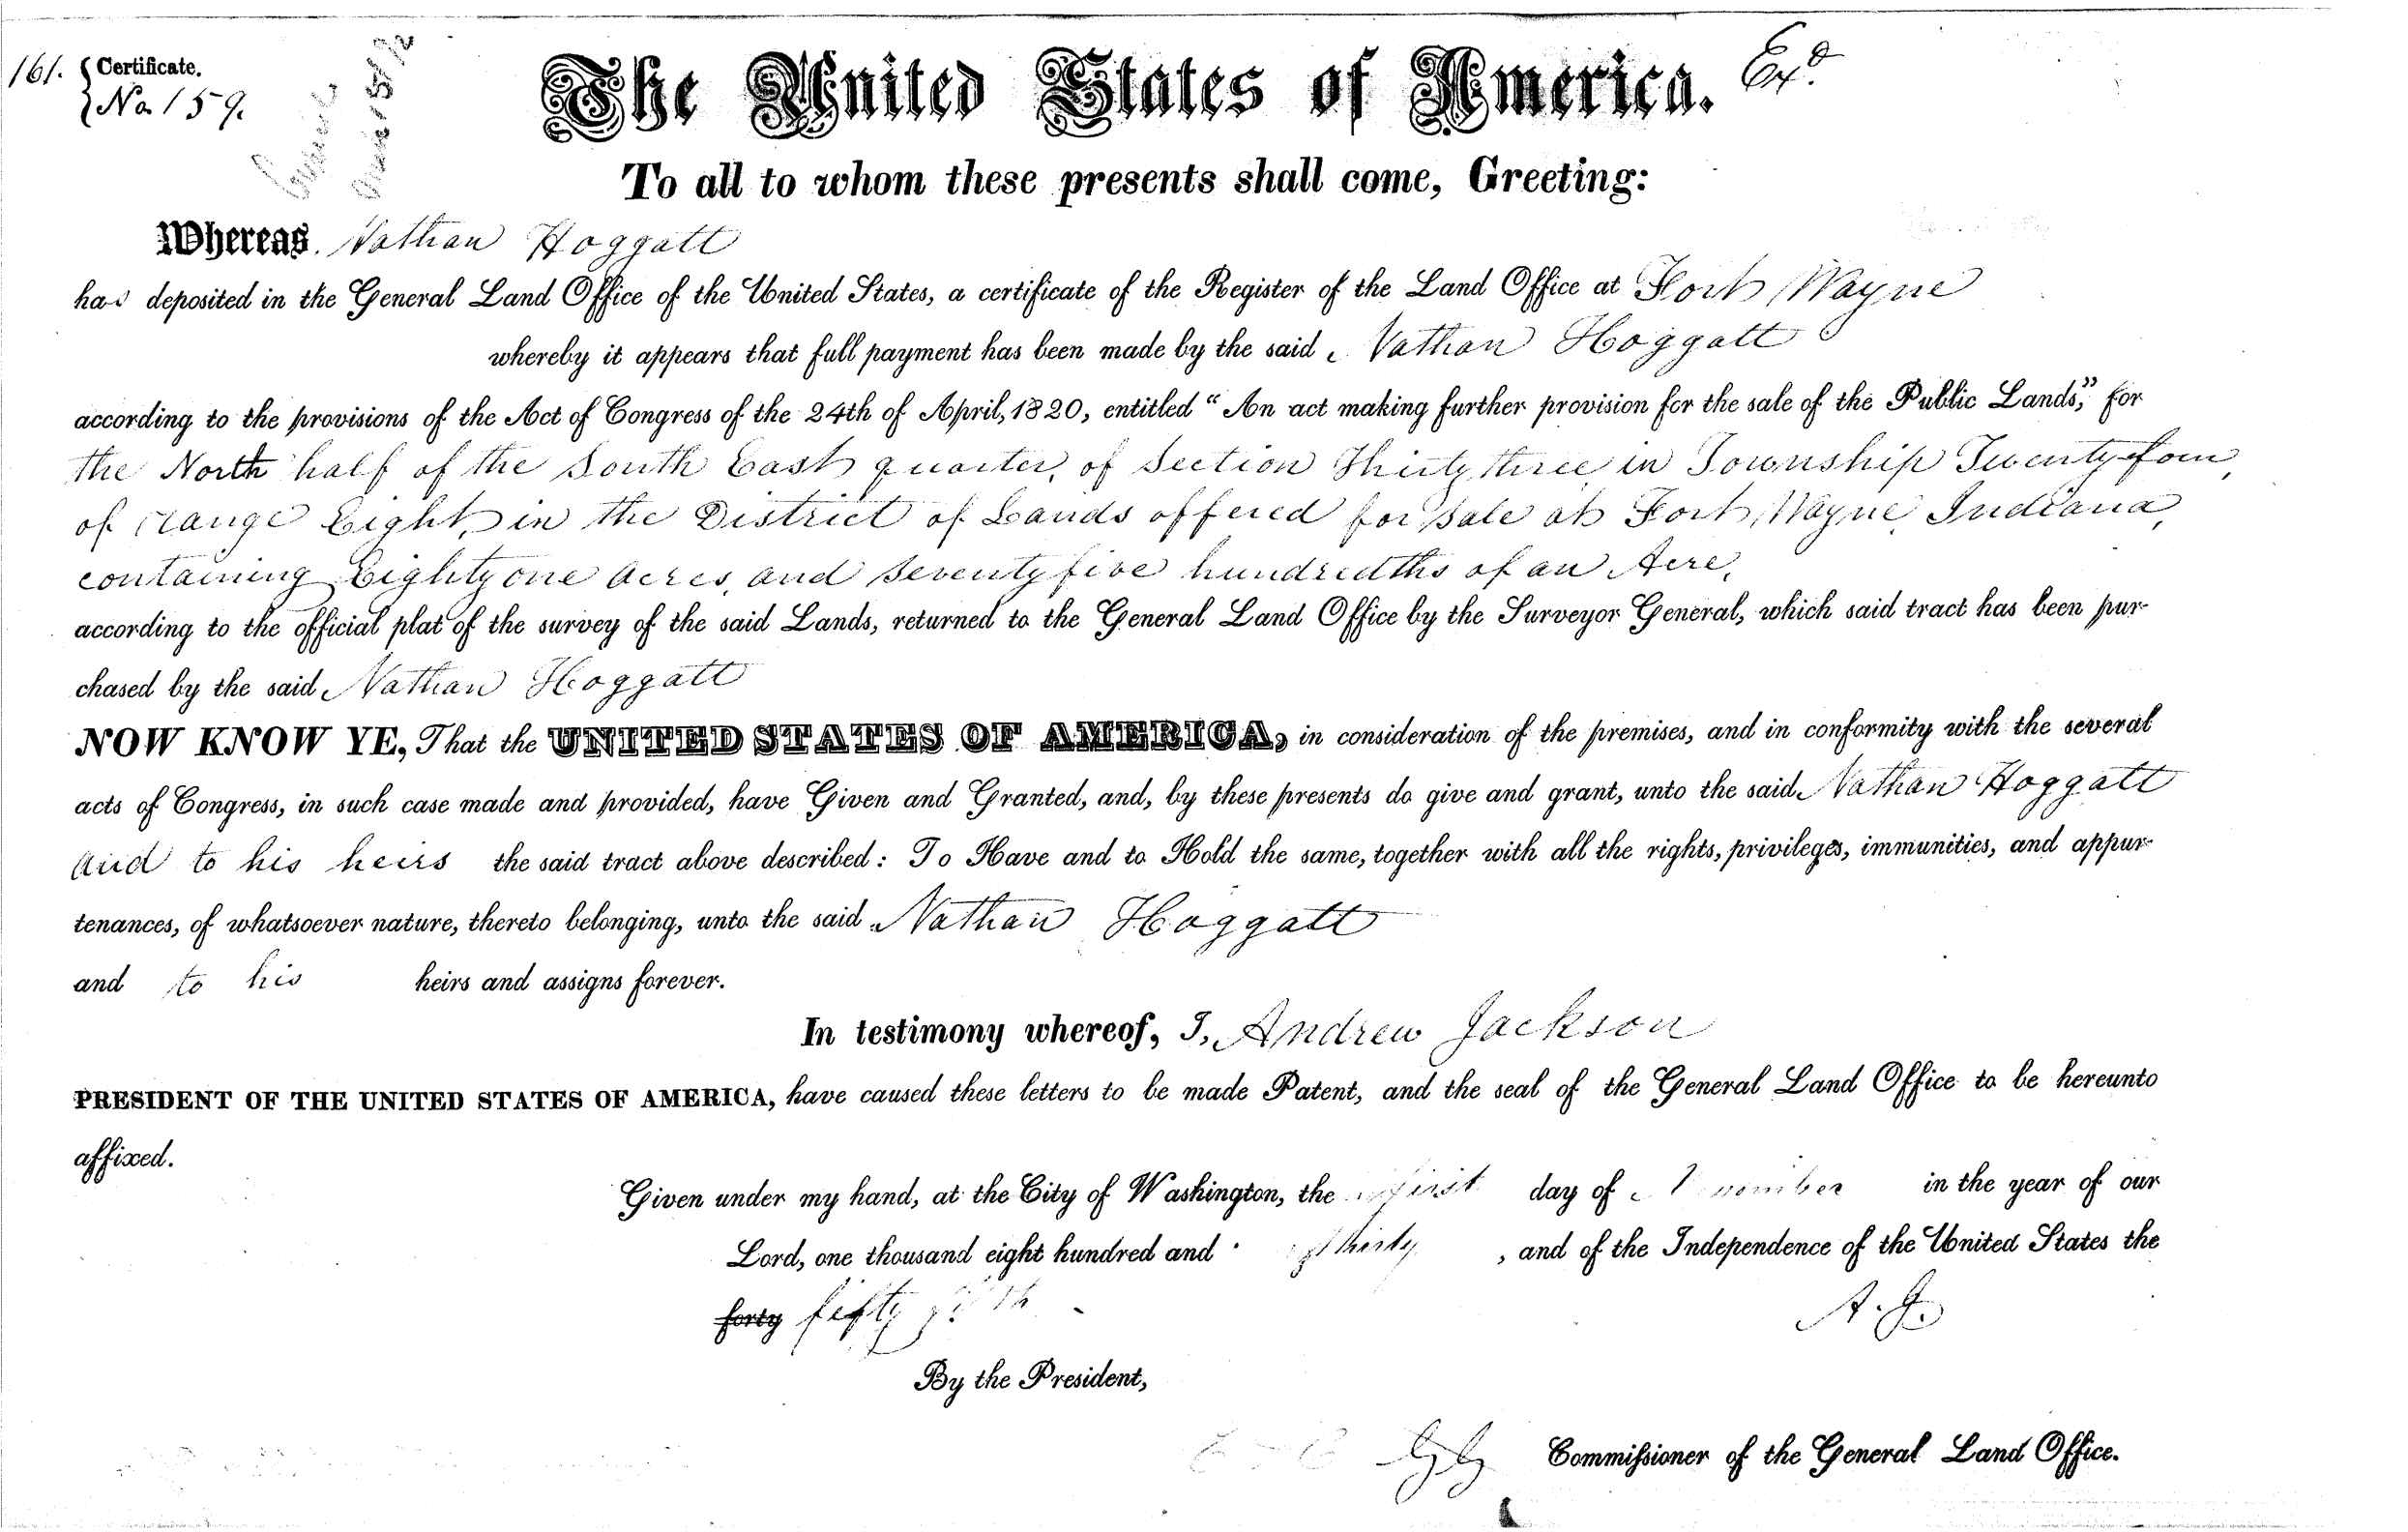 161. Certificate. No. 159.
The United States of America. Exd
To all to whom these presents shall come, Greeting:
Whereas Nathan Hoggatt
has deposited in the General Land Office of the United States, a certificate of the Register of the Land Office at Fort Wayne
whereby it appears that full payment has been made by the said Nathan Hoggatt
according to the provisions of the Act of Congress of the 24th of April, 1820, entitled “An act making further provision for the sale of the Public Lands,” for
the North half of the South East quarter, of Section Thirty three in Township Twenty four,
of range Eight, in the District of Lands offered for sale at Fort Wayne, Indiana,
containing Eighty one acres, and seventy five hundredths of an Acre,
according to the official plat of the survey of the said Lands, returned to the General Land Office by the Surveyor General, which said tract has been pur-
chased by the said Nathan Hoggatt
NOW KNOW YE, That the UNITED STATES OF AMERICA, in consideration of the premises, and in conformity with the several
acts of Congress, in such case made and provided, have Given and Granted, and, by these presents do give and grant, unto the said Nathan Hoggatt
and to his heirs the said tract above described: To Have and to Hold the same, together with all the rights, privileges, immunities, and appur-
tenances, of whatsoever nature, thereto belonging, unto the said Nathan Hoggatt
and to his heirs and assigns forever.
In testimony whereof, I, Andrew Jackson
PRESIDENT OF THE UNITED STATES OF AMERICA, have caused these letters to be made Patent, and the seal of the General Land Office to be hereunto
affixed.
Given under my hand, at the City of Washington, the first day of November in the year of our
Lord, one thousand eight hundred and thirty, and of the Independence of the United States the
forty fifty fifth
A. J.
By the President,
Commissioner of the General Land Office.